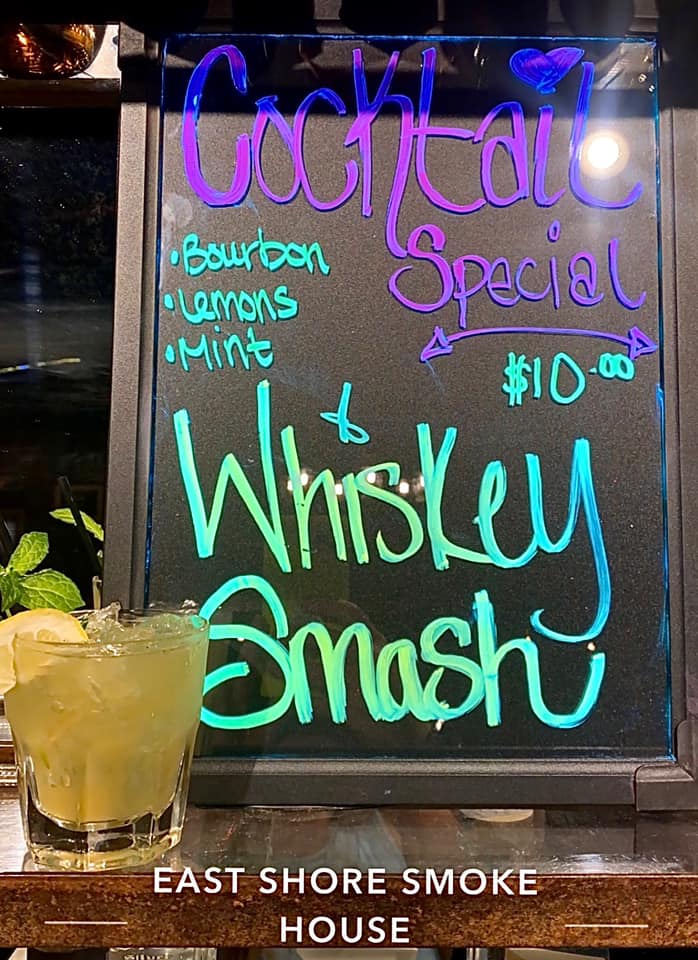 Cocktail
Special
• Bourbon
• Lemons
• Mint
$10.00
Whiskey
Smash
EAST SHORE SMOKE
HOUSE